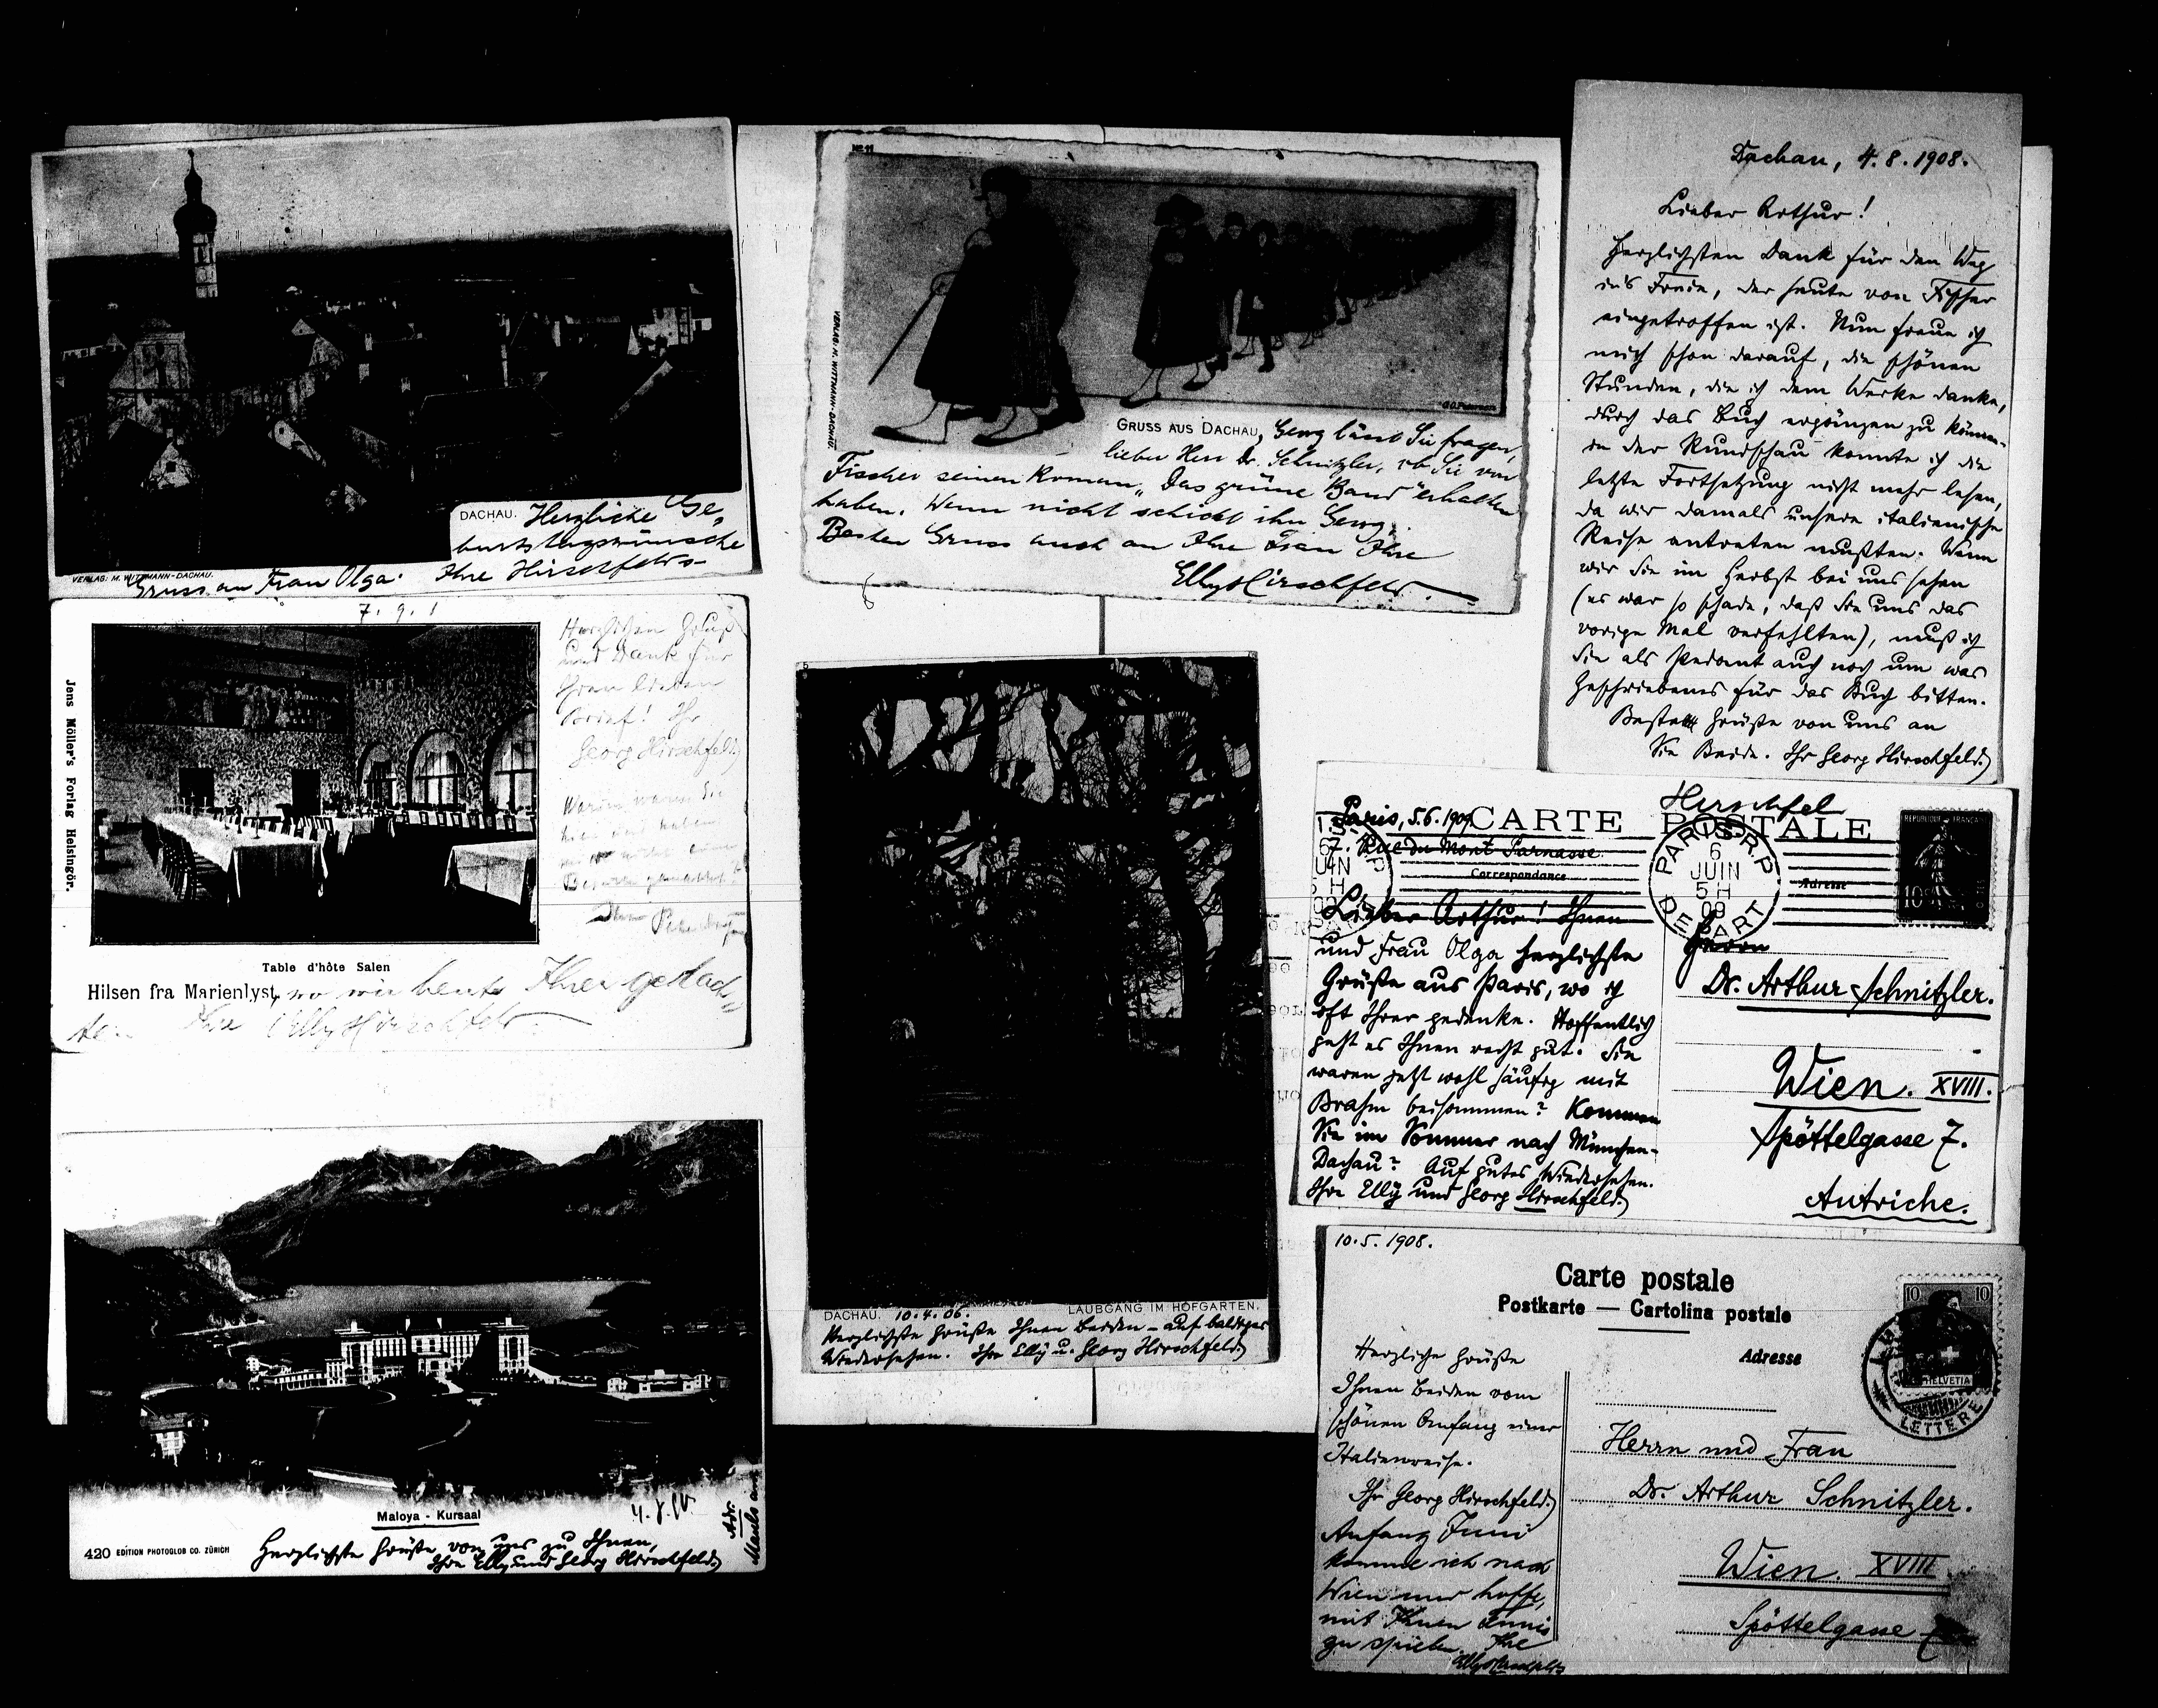 DACHAU. Herzliche Ge-
burtstagswünsche
VERLAG: M. WITTMANN-DACHAU.
Gruss an Frau Olga. Ihre Hirschfelds
No 11
VERLAG: M. WITTMANN-DACHAU.
GRUSS AUS DACHAU, Georg lässt Sie fragen,
lieber Herr Dr. Schnitzler, ob Sie von
Fischer seinen Roman „Das grüne Band" erhalten
haben. Wenn nicht schickt ihn Georg.
Besten Gruss auch an Ihre Frau Ihre
Elly Hirschfeld.
Dachau, 4.8.1908.
Lieber Arthur!
Herzlichsten Dank für den Weg
ins Freie, der heute von Fischer
eingetroffen ist. Nun freue ich
mich schon darauf, die schönen
Stunden, die ich dem Werke danke,
durch das Buch ergänzen zu können –
in der Rundschau konnte ich die
letzte Fortsetzung nicht mehr lesen,
da wir damals unsere italienische
Reise antreten mußten. Wenn
wir Sie im Herbst bei uns sehen
(es war so schade, daß Sie uns das
vorige Mal verfehlten), muß ich
Sie als Pedant auch noch um was
Geschriebenes für das Buch bitten.
Beste Grüße von uns an
Sie Beide. Ihr Georg Hirschfeld.
7. 9. 1
Jens Möller's Forlag Helsingör.
Herzlichen Gruß
und Dank für
Ihren lieben
Brief! Ihr
Georg Hirschfeld
Warum waren Sie
Table d'hôte Salen
Hilsen fra Marienlyst, wo wir heute Ihrer gedach-
ten. Ihre Elly Hirschfeld
Hirschfel
Paris, 5.6.1909
CARTE POSTALE
7. Rue du Mont Parnasse.
Correspondance
Adresse
REPUBLIQUE FRANÇAISE
10
PARIS R.P
6
JUIN
5H
09
DEPART
Lieber Arthur! Ihnen
und Frau Olga herzlichste
Grüße aus Paris, wo ich
oft Ihrer gedenke. Hoffentlich
geht es Ihnen recht gut. Sie
waren jetzt wohl häufig mit
Brahm beisammen? Kommen
Sie im Sommer nach München-
Dachau? Auf gutes Wiedersehen.
Ihre Elly und Georg Hirschfeld.
Herrn
Dr. Arthur Schnitzler.
Wien. XVIII.
Spöttelgasse 7.
Autriche.
DACHAU. 10.4.06. LAUBGANG IM HOFGARTEN.
Herzlichste Grüße Ihnen Beiden – auf baldiges
Wiedersehen. Ihre Elly u. Georg Hirschfeld.
Maloya - Kursaal
420 EDITION PHOTOGLOB CO. ZÜRICH
Herzlichste Grüße von uns zu Ihnen,
Ihre Elly und Georg Hirschfeld
Adr.
10.5.1908.
Carte postale
Postkarte — Cartolina postale
Adresse
10 10
HELVETIA
LETTERE
Herzliche Grüße
Ihnen Beiden vom
schönen Anfang einer
Italienreise.
Ihr Georg Hirschfeld.
Anfang Juni
komme ich nach
Wien und hoffe,
mit Ihnen Tennis
zu spielen. Ihre
Elly Hirschfeld
Herrn und Frau
Dr. Arthur Schnitzler.
Wien. XVIII
Spöttelgasse 7